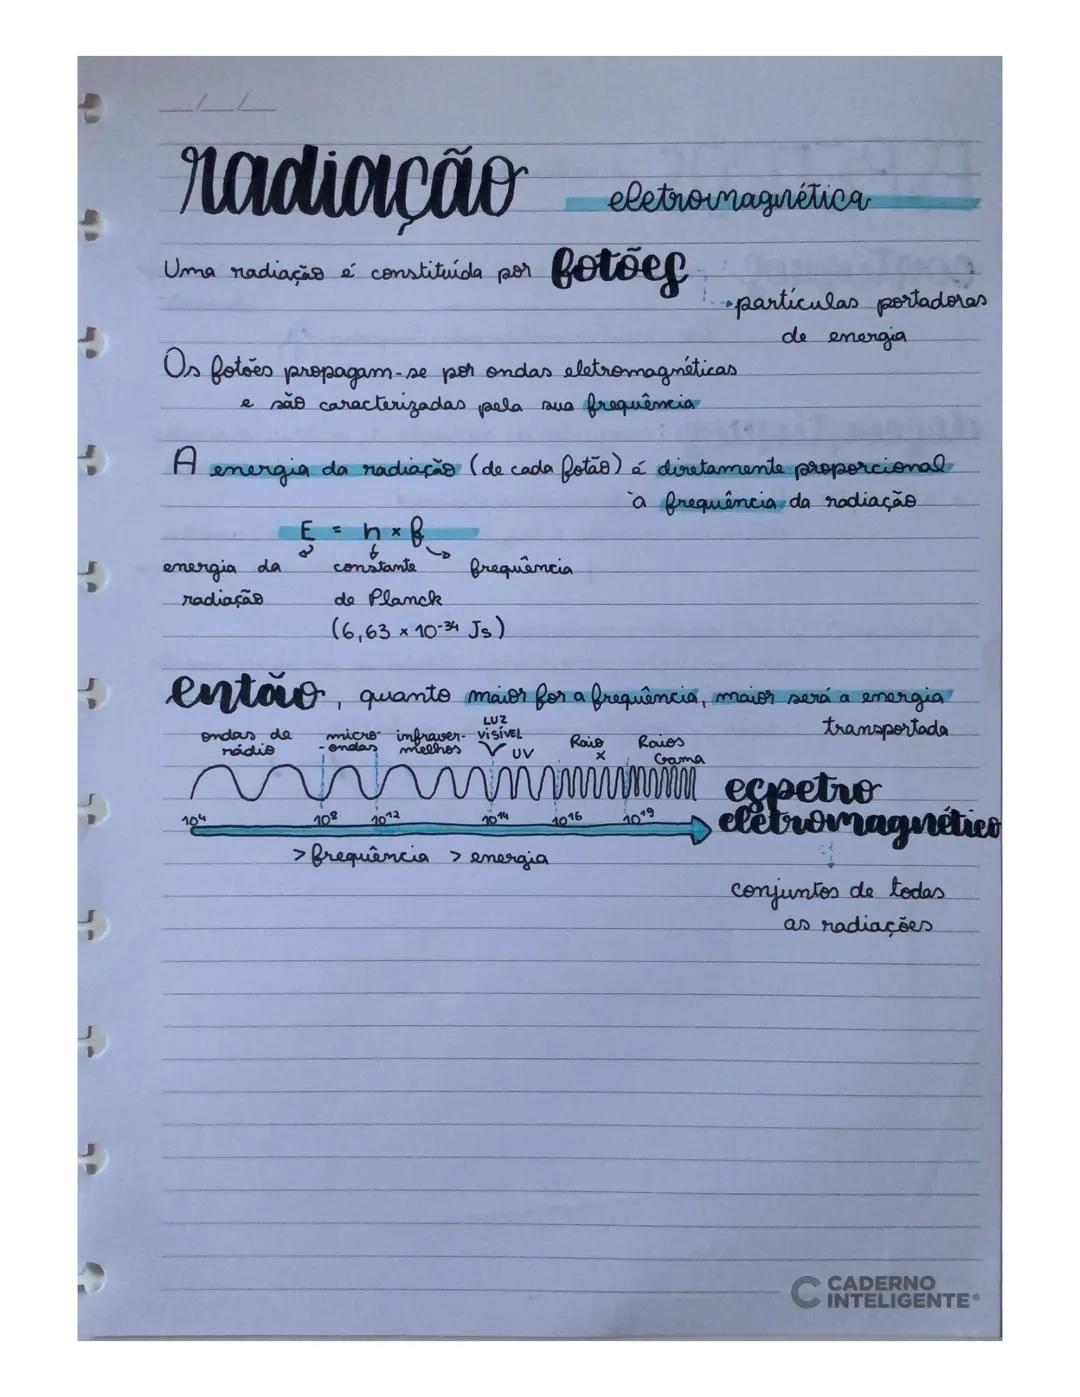 __/__/__
radiação eletromagnética
Uma radiação é constituída por fotões
partículas portadoras
de energia
Os fotões propagam-se por ondas eletromagnéticas
e são caracterizadas pela sua frequência
A energia da radiação (de cada fotão) é diretamente proporcional
à frequência da radiação
E = h × f
energia da radiação
constante de Planck
(6,63 × 10⁻³⁴ Js)
frequência
então, quanto maior for a frequência, maior será a energia
transportada
ondas de rádio
micro-ondas
infraver-melhos
LUZ VISÍVEL
UV
Raio X
Raios Gama
10⁴ 10⁸ 10¹² 10¹⁴ 10¹⁶ 10¹⁹
> frequência > energia
espetro
eletromagnético
conjuntos de todas
as radiações
CADERNO
INTELIGENTE®